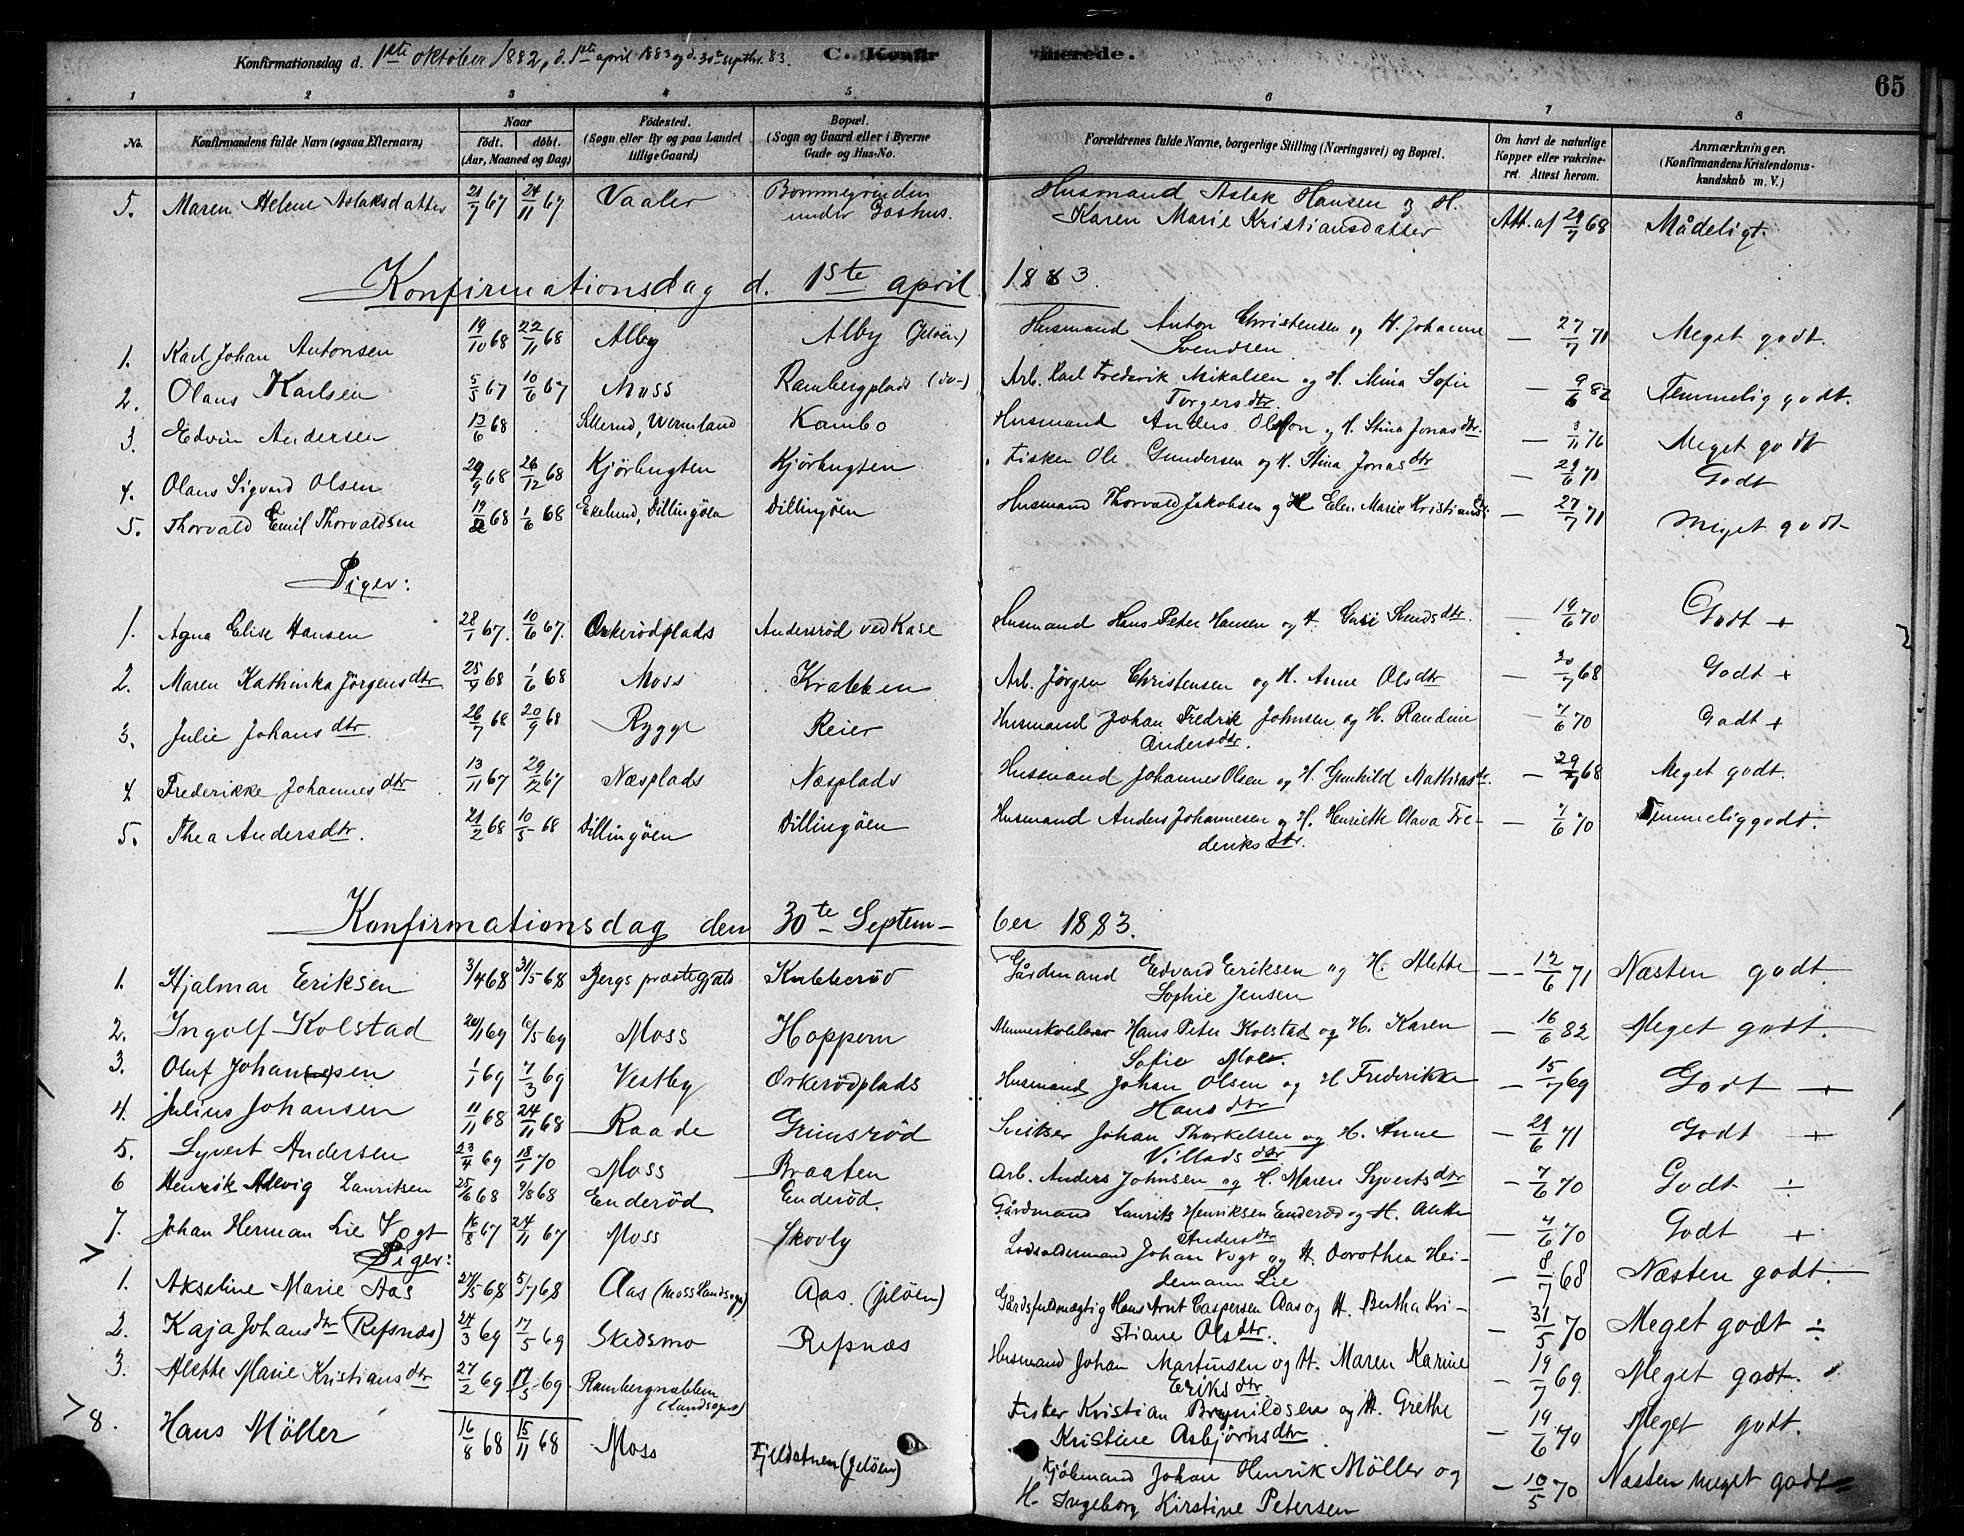 Konfirmationsdag d. 1ste oktober 1882, d. 1ste april 1883 og d. 30te septbr. 83. C. Konfirmerede. 65
1 2 3 4 5 6 7 8
No. Konfirmandens fulde Navn (ogsaa Efternavn) Naar födt. döbt. (Aar, Maaned og Dag) Födested. (Sogn eller By og paa Landet tillige Gaard) Bopæl. (Sogn og Gaard eller i Byerne Gade og Hus-No. Forældrenes fulde Navne, borgerlige Stilling (Næringsvei) og Bopæl. Om havt de naturlige Kopper eller vakcineret. Attest herom. Anmærkninger. (Konfirmandens Kristendomskundskab m. V.)
5. Maren Helene Aslaksdatter 21/7 67 24/11 67 Vaaler Bommegrinden under Goshus. Husmand Aslak Hansen og H. Karen Marie Kristiansdatter Att. af 29/7 68 Mådeligt.
Konfirmationsdag d. 1ste april 1883.
1. Karl Johan Antonsen 19/10 68 22/11 68 Alby Alby (Jeløen) Husmand Anton Christensen og H. Johanne Svendsen. — 27/7 71 Meget godt.
2. Olaus Karlsen 5/5 67 10/6 67 Moss Rambergplads (do-) Arb. Karl Frederik Mikalsen og H. Mina Sofie Torgersdtr — 9/6 82 Temmelig godt.
3. Edvin Andersen 13/6 68 Sillerud, Wermland Kambo Husmand Anders Olsson og H. Stina Jonasdtr. — 3/11 76 Meget godt
4. Olaus Sigvard Olsen 29/9 68 26/12 68 Kjörbugten Kjörbugten Fisker Ole Gundersen og H. Stina Jonasdtr — 29/6 71 Godt
5. Thorvald Emil Thorvaldsen 19/2 68 1/6 68 Ekelund, Dillingöen Dillingöen Husmand Thorvald Jakobsen og H Elen Marie Kristiansdtr — 27/7 71 Meget godt
Piger:
1. Agna Elise Hansen 28/1 67. 10/6 67. Orkerödplads Andersröd ved Kase Husmand Hans Peter Hansen og H. Svendsdtr. — 19/6 70 Godt +
2. Maren Kathinka Jörgensdtr 25/4 68 1/6 68 Moss Krabben Arb. Jörgen Christensen og H. Anne Olsdtr — 30/7 68 Godt +
3. Julie Johansdtr. 26/7 68 20/9 68 Rygge Reier Husmand Johan Fredrik Johnsen og H. Randine Andersdtr. — 7/6 70 Godt +
4 Frederikke Johannesdtr 13/11 67 29/12 67 Næsplads Næsplads Husmand Johannes Olsen og H. Gunhild Mathiasdr. — 29/7 68 Meget godt.
5. Thea Andersdtr. 21/2 68 10/5 68 Dillingöen Dillingöen Husmand Anders Johannesen og H. Henriette Olava Frederiksdtr. — 7/6 70 Temmelig godt.
Konfirmationsdag den 30te September 1883.
1. Hjalmar Eriksen 3/4 68 31/5 68 Bergs præstegjæld Kubberöd Gårdmand Edvard Eriksen og H. Alette Sophie Jensen — 12/6 71 Næsten godt.
2. Ingolf Kolstad 20/1 69 6/5 69 Moss Hoppern Hans Peter Kolstad og H. Karen Sofie Moe. — 16/6 82 Meget godt.
3. Oluf Johansen 1/1 69 7/3 69 Vestby Orkerödplads Husmand Johan Olsen og H Frederikke Hansdtr — 15/7 69 Godt +
4. Julius Johansen 11/11 68 24/11 68 Raade Grimsröd Sveitser Johan Thorkelsen og H. Anne Villadsdtr — 29/6 71 Godt +
5. Syvert Andersen 23/4 69 18/1 70 Moss Braaten Arb. Anders Johnsen og H. Maren Syvertsdtr — 7/6 70 Godt ÷
6 Henrik Lauritsen 25/6 68 9/8 68 Enderöd Enderöd. Gårdmand Laurits Henriksen Enderöd og H. Alette Andersdtr — 7/6 70 Godt +
7. Johan Herman Lie Vogt 16/8 67 24/11 67 Moss Skovly Lodsoldermand Johan Vogt og H. Dorothea Heidemann Lie — 8/7 68 Næsten godt.
Piger:
1. Akseline Marie Aas 27/5 68 5/7 68 Aas (Moss Landsogn) Aas. (Jeløen) Gårdsfuldmægtig Hans Arnt Caspersen Aas og H. Bertha Kristiane Olsdtr. — 31/5 70 Meget godt ÷
2. Kaja Johansdtr (Refsnæs) 24/3 69 17/5 69 Skedsmo Refsnæs Husmand Johan Martinsen og H. Maren Karine Eriksdtr — 19/7 69 Meget godt.
3. Alette Marie Kristiansdtr 27/2 69 17/5 69 Rambergnabben (Landsogn) Fisker Kristian Brynildsen og H. Grethe Kristine Asbjørnsdtr — 19/6 70 Meget godt.
8. Hans Möller 16/8 68 15/11 68 Moss Fjeldstuen (Jeløen) Kjöbmand Johan Henrik Möller og H. Ingeborg Kirstine Petersen — 10/5 70 Næsten meget godt